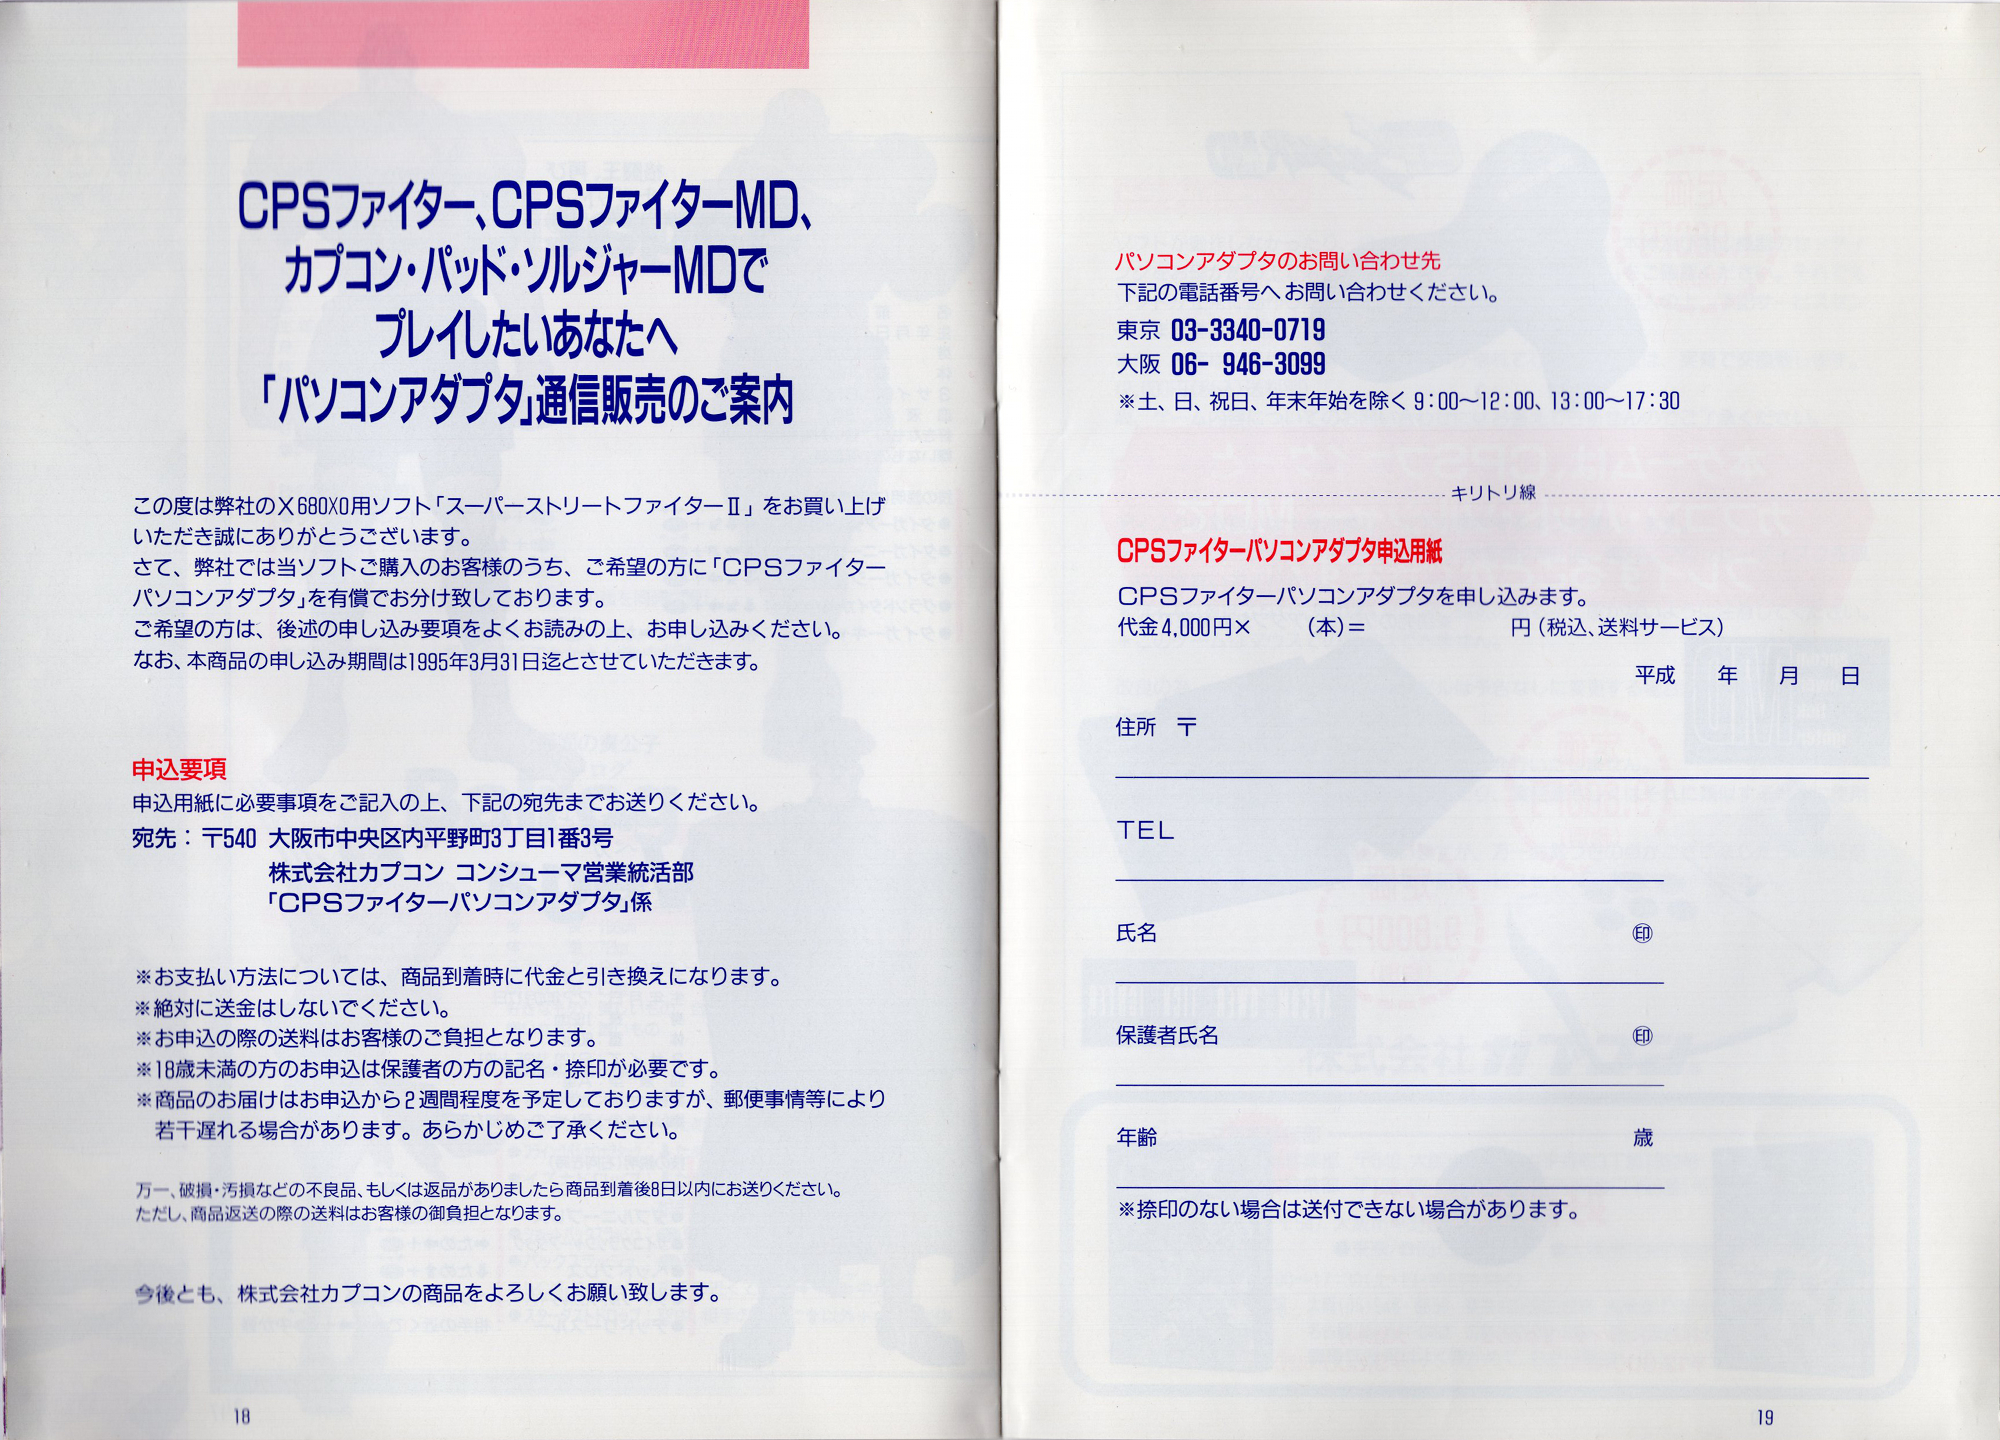 CPSファイター、CPSファイターMD、
カプコン・パッド・ソルジャーMDで
プレイしたいあなたへ
「パソコンアダプタ」通信販売のご案内
この度は弊社のX680X0用ソフト「スーパーストリートファイターⅡ」をお買い上げ
いただき誠にありがとうございます。
さて、弊社では当ソフトご購入のお客様のうち、ご希望の方に「CPSファイター
パソコンアダプタ」を有償でお分け致しております。
ご希望の方は、後述の申し込み要項をよくお読みの上、お申し込みください。
なお、本商品の申し込み期間は1995年3月31日迄とさせていただきます。
申込要項
申込用紙に必要事項をご記入の上、下記の宛先までお送りください。
宛先：〒540 大阪市中央区内平野町3丁目1番3号
株式会社カプコン コンシューマ営業統活部
「CPSファイターパソコンアダプタ」係
※お支払い方法については、商品到着時に代金と引き換えになります。
※絶対に送金はしないでください。
※お申込の際の送料はお客様のご負担となります。
※18歳未満の方のお申込は保護者の方の記名・捺印が必要です。
※商品のお届けはお申込から2週間程度を予定しておりますが、郵便事情等により
若干遅れる場合があります。あらかじめご了承ください。
万一、破損・汚損などの不良品、もしくは返品がありましたら商品到着後8日以内にお送りください。
ただし、商品返送の際の送料はお客様の御負担となります。
今後とも、株式会社カプコンの商品をよろしくお願い致します。
18
パソコンアダプタのお問い合わせ先
下記の電話番号へお問い合わせください。
東京 03-3340-0719
大阪 06- 946-3099
※土、日、祝日、年末年始を除く 9：00〜12：00、13：00〜17：30
キリトリ線
CPSファイターパソコンアダプタ申込用紙
CPSファイターパソコンアダプタを申し込みます。
代金4,000円× （本）＝ 円（税込、送料サービス）
平成 年 月 日
住所 〒
TEL
氏名 ㊞
保護者氏名 ㊞
年齢 歳
※捺印のない場合は送付できない場合があります。
19